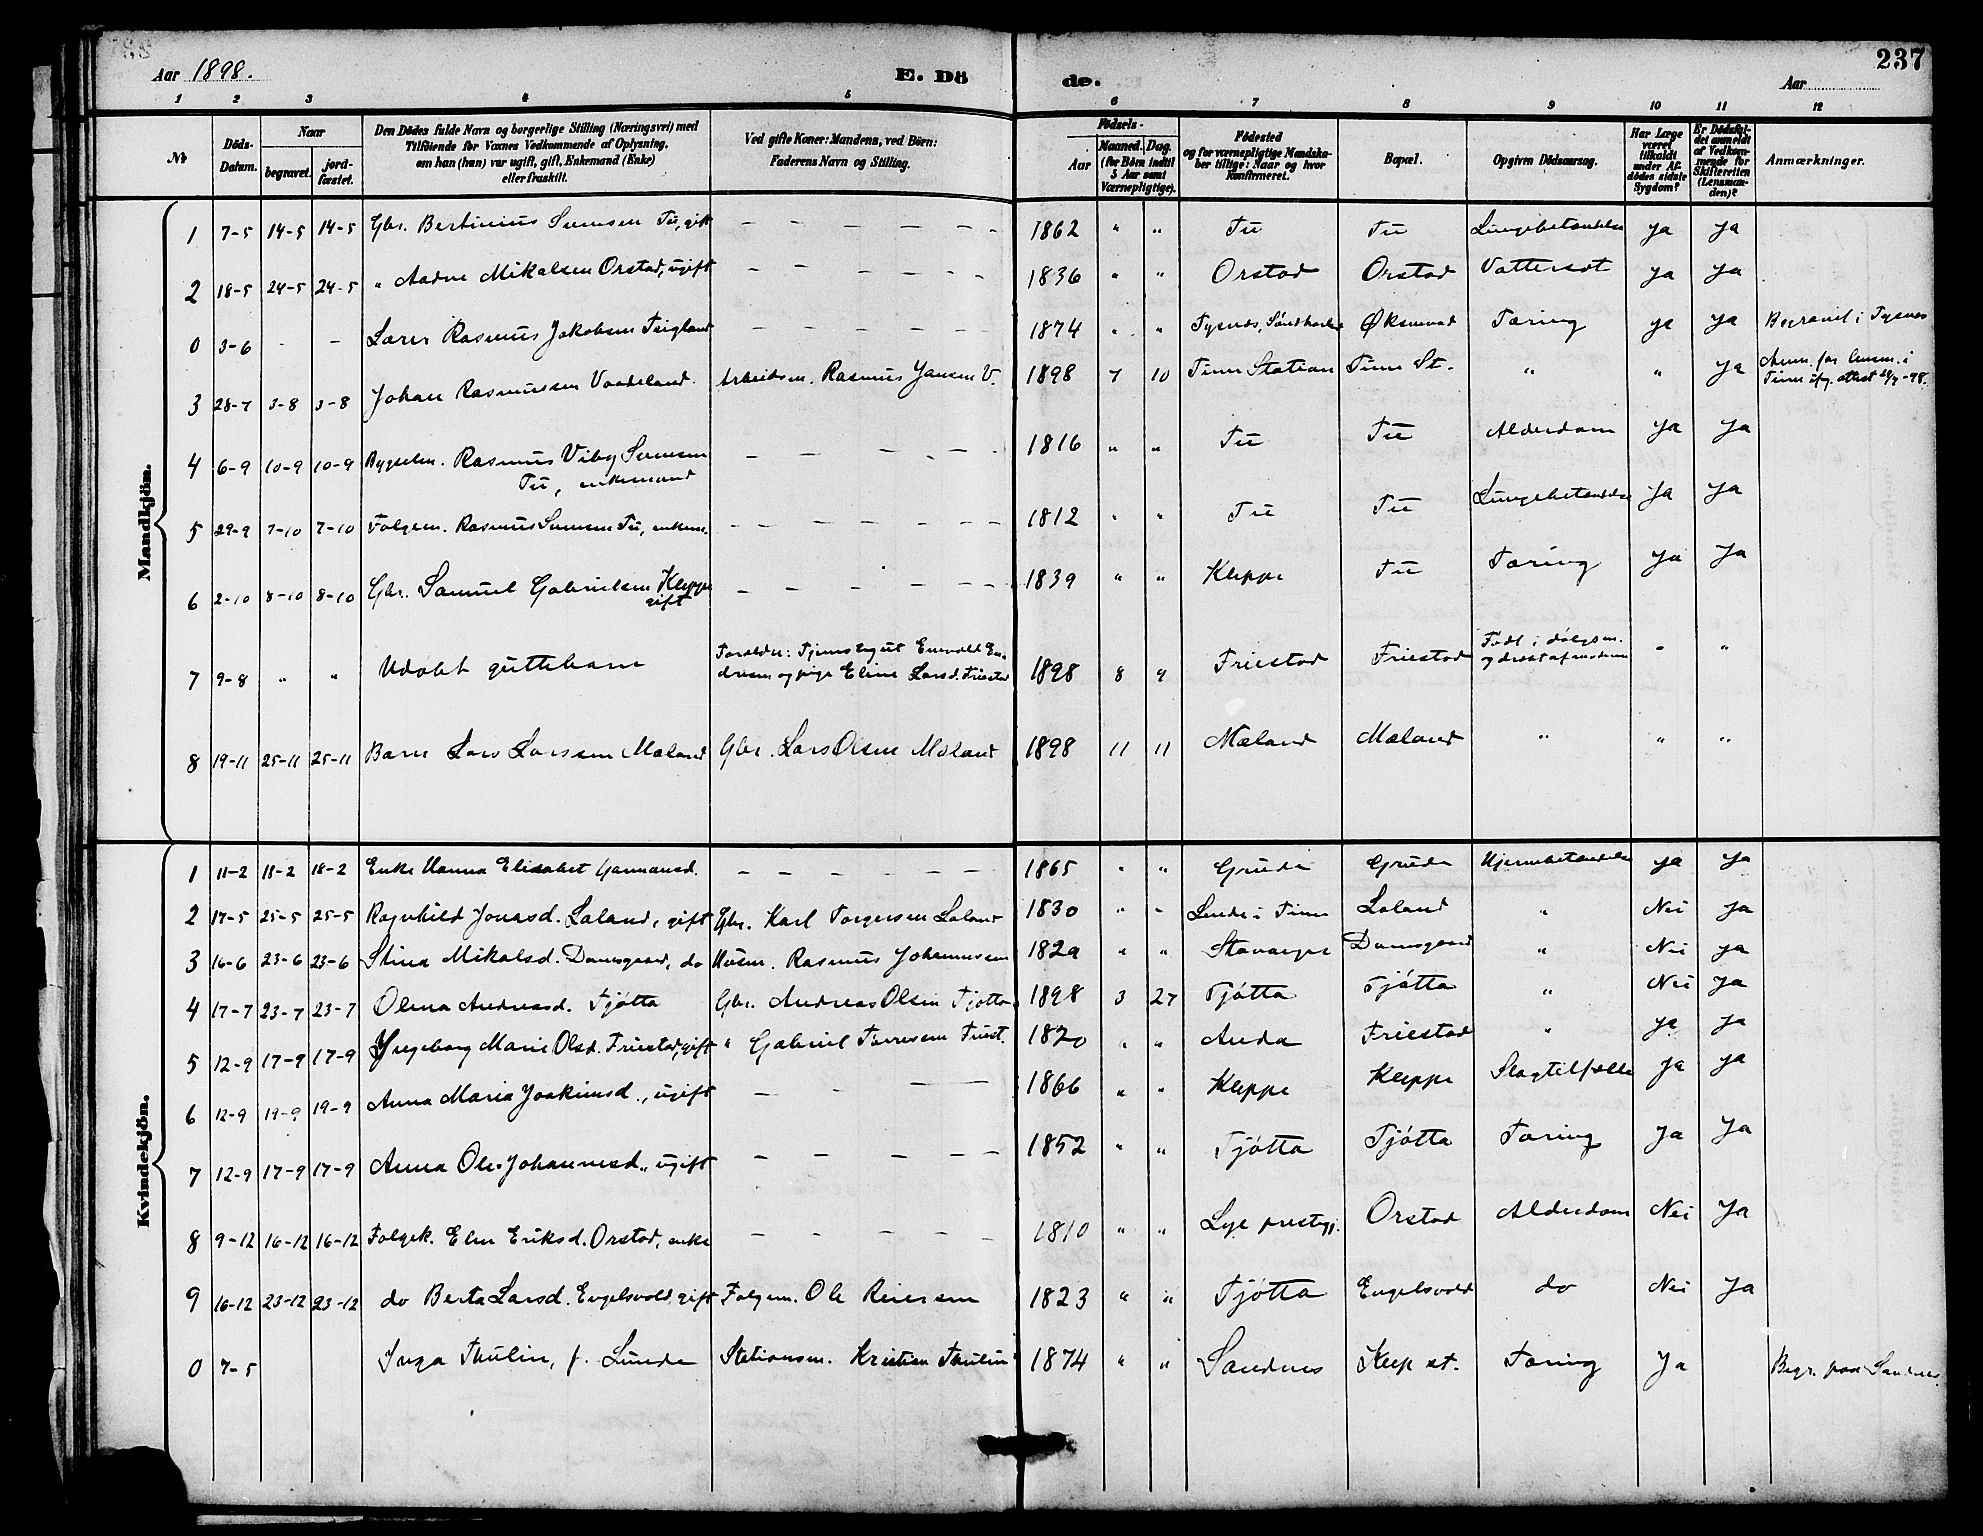 Aar 1898. E. Dö de. Aar 237
1 2 3 4 5 6 7 8 9 10 11 12
No
Döds-Datum.
Naar
begravet.
jord-fæstet.
Den Dödes fulde Navn og borgerlige Stilling (Næringsvei) med
Tilföiende for Voxnes Vedkommende af Oplysning,
om han (hun) var ugift, gift, Enkemand (Enke)
eller fraskilt.
Ved gifte Koner: Mandens, ved Börn:
Faderens Navn og Stilling.
Födsels-
Aar
Maaned. Dag.
(for Börn indtil
5 Aar samt
Værnepligtige).
Födested
og for værnepligtige Mandska-
ber tillige: Naar og hvor
konfirmeret.
Bopæl.
Opgiven Dödsaarsag.
Har Læge
været
tilkaldt
under Af-
dödes sidste
Sygdom?
Er Dödsfal-
det anmeldt
af Vedkom-
mende for
Skifteretten
(Lensman-
den)?
Anmærkninger.
Mandkjön.
1 7-5 14-5 14-5 Gbr. Bertinius Sivensen Tu, gift — — — — — — 1862 " " Tu Tu Lungebetændelse Ja Ja
2 18-5 24-5 24-5 " Aadne Mikalsen Orstad, ugift — — — — — — 1836 " " Orstad Orstad Vattersot Ja Ja
0 3-6 - - Lærer Rasmus Jakobsen Tsigland — — — — — — 1874 " " Tysnes, Söndhordl. Øksnevad Tæring ja Ja Begravet i Tysnes
3 28-7 3-8 3-8 Johan Rasmussen Vaadeland. Arbeidsm. Rasmus Jansen V. 1898 7 10 Time Station Time St. " " Ja Anm. for lensm. i
Time ifg. attest
4 6-9 10-9 10-9 Bygselm. Rasmus Viby Sivensen — — — — — 1816 " " Tu Tu Alderdom Ja Ja
Tu, enkemand
5 29-9 7-10 7-10 Folgem. Rasmus Sivensen Tu, enkem. — — — — — — — 1812 " " Tu Tu Lungebetændelse Ja Ja
6 2-10 8-10 8-10 Gbr. Samuel Gabrielsen Kleppe — — — — — — 1839 " " Kleppe Tu Tæring Ja Ja
gift
7 9-8 " " Udöbt guttebarn Forældre: Tjenestegut Enevald En-
dresen og pige Eline Larsd. Friestad 1898 8 9 Friestad Friestad Födt i dölgsm.
og dræbt af moderen " "
8 19-11 25-11 25-11 Barn Lars Larssen Mæland Gbr. Lars Olsen Mæland 1898 11 11 Mæland Mæland " " "
Kvindekjön.
1 11-2 18-2 18-2 Enke Hanna Elisabet Gammansd. — — — — — — 1865 " " Gruda Gruda Hjernebetændelse Ja Ja
2 17-5 25-5 25-5 Ragnhild Jonasd. Laland, gift Gbr. Karl Torgersen Laland 1830 " " Lende i Time Laland " Nei Ja
3 16-6 23-6 23-6 Stina Mikalsd. Damsgaard, do Husm. Rasmus Johannesen 1829 " " Stavanger Damsgaard " Nei Ja
4 17-7 23-7 23-7 Olena Andreasd. Tjötta Gbr. Andreas Olsen Tjötta 1898 3 27 Tjötta Tjötta " Nei Ja
5 12-9 17-9 17-9 Ingeborg Marie Olsd. Friestad, gift " Gabriel Torresen Friest. 1820 " " Anda Friestad " Ja Ja
6 12-9 19-9 19-9 Anna Maria Joakimsd., ugift — — — 1866 " " Kleppe Kleppe Slagtilfælde Ja Ja
7 12-9 17-9 17-9 Anna Ole-Johannesd., ugift — — — — — 1852 " " Tjötta Tjötta Tæring Ja Ja
8 9-12 16-12 16-12 Folgek. Elen Eriksd. Orstad, enke — — — — — 1810 " " Lye prestgj. Orstad Alderdom Nei Ja
9 16-12 23-12 23-12 do Berta Larsd. Engelsvold, gift Folgem. Ole Reiersen 1823 " " Tjötta Engelsvold do Nei Ja
0 7-5 Inga Thulin, f. Lunde Stationsm. Kristian Thulin 1874 " " Sandnes Klep st. Tæring Ja Begr. paa Sandnes.